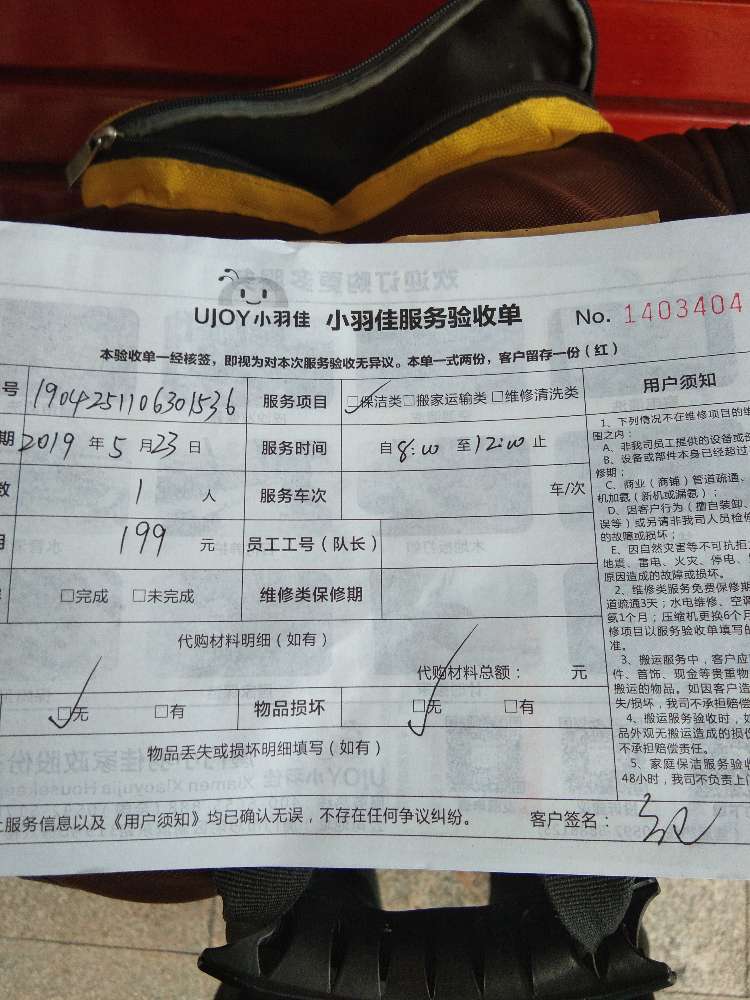 UJOY小羽佳 小羽佳服务验收单 No. 1403404
本验收单一经核签，即视为对本次服务验收无异议。本单一式两份，客户留存一份（红）
号 1904251106301536 服务项目 □保洁类□搬家运输类□维修清洗类
期 2019 年 5 月 23 日 服务时间 自 8:00 至 12:00 止
数 1 人 服务车次 车/次
199 元 员工工号（队长）
□完成 □未完成 维修类保修期
代购材料明细（如有）
代购材料总额： 元
□无 □有 物品损坏 □无 □有
物品丢失或损坏明细填写（如有）
上服务信息以及《用户须知》均已确认无误，不存在任何争议纠纷。 客户签名：
用户须知
1、下列情况不在维修项目的维
围之内：
A、非我司员工提供的设备或部
B、设备或部件本身已经超过
修期；
C、商业（商铺）管道疏通、
机加氨（新机或漏氨）；
D、因客户行为（擅自装卸、
误等）或另请非我司人员检修
的故障或损坏；
E、因自然灾害等不可抗拒
地震、雷电、火灾、停电、
原因造成的故障或损坏。
2、维修类服务免费保修期
道疏通3天；水电维修、空调
氨1个月；压缩机更换6个月
修项目以服务验收单填写的
准。
3、搬运服务中，客户应
件、首饰、现金等贵重物
搬运的物品。如因客户造
失/损坏，我司不承担赔偿
4、搬运服务验收时，如
品外观无搬运造成的损
不承担赔偿责任。
5、家庭保洁服务验收
48小时，我司不负责上门